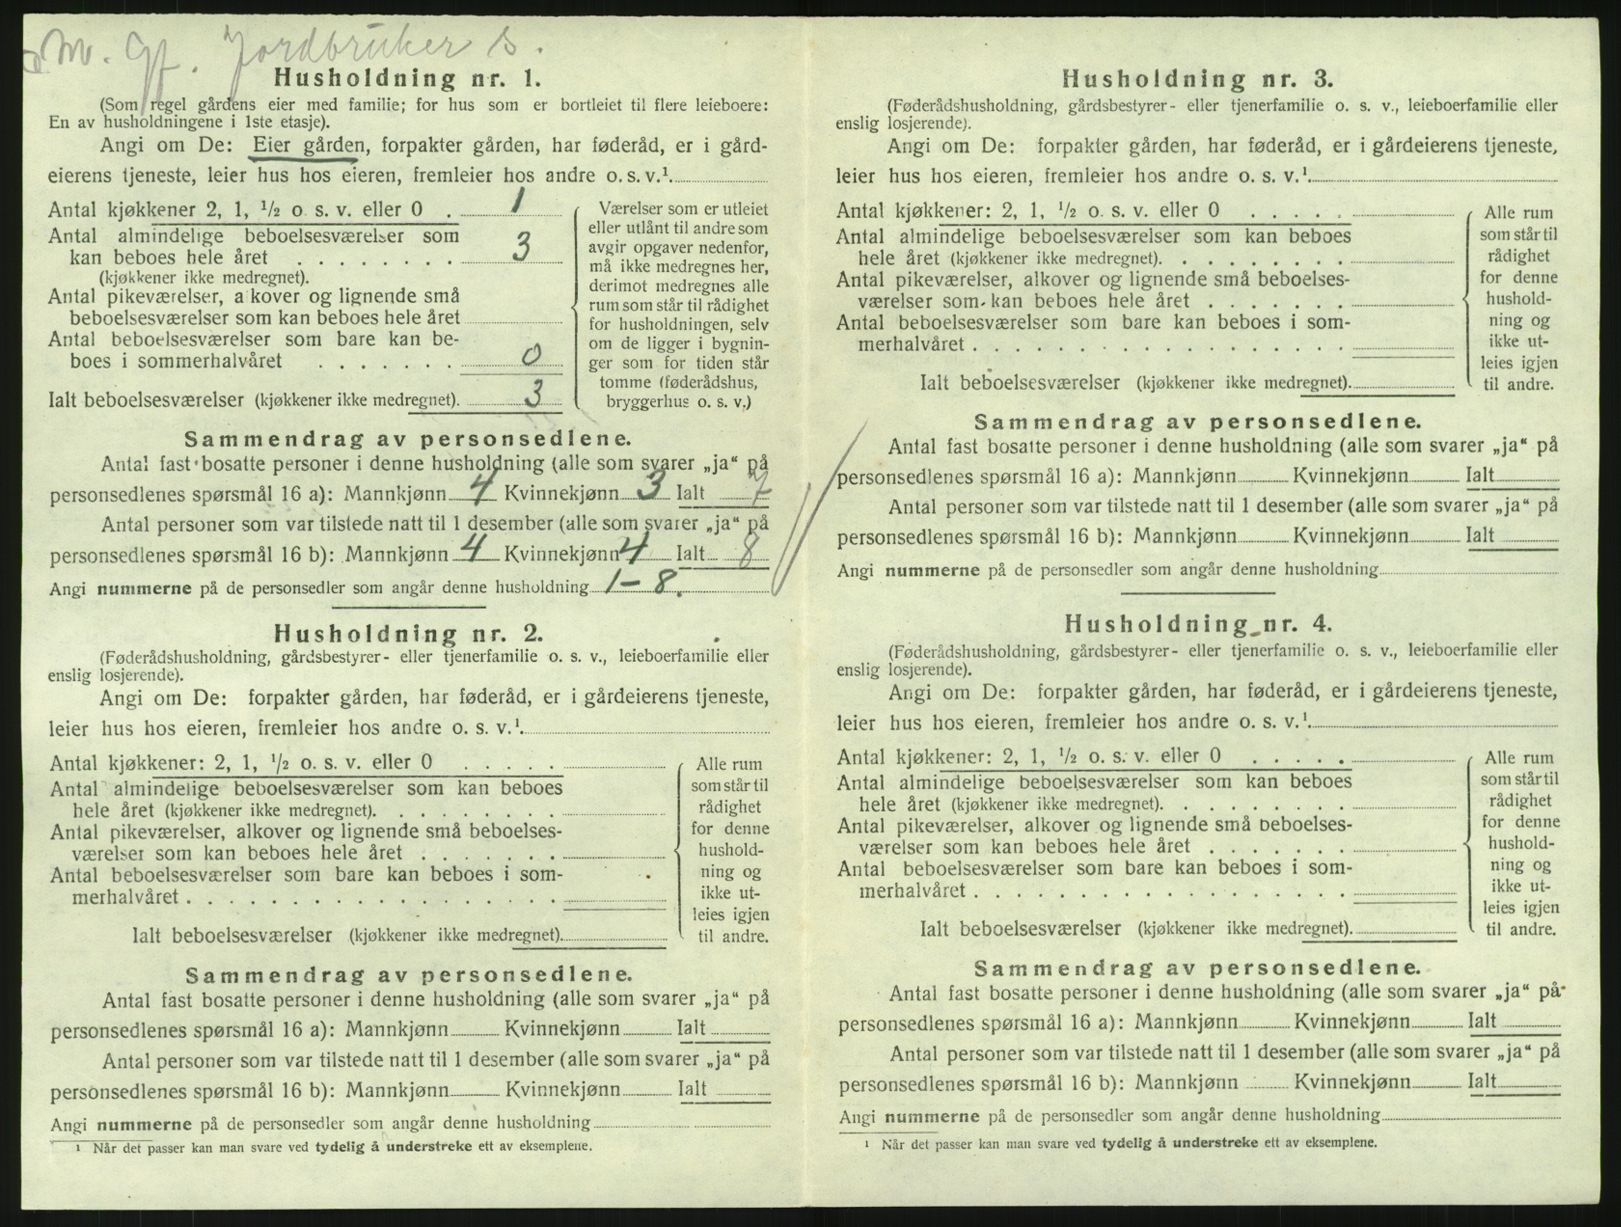 M. Gf. Jordbruker S.
Husholdning nr. 1.
(Som regel gårdens eier med familie; for hus som er bortleiet til flere leieboere:
En av husholdningene i 1ste etasje).
Angi om De: Eier gården, forpakter gården, har føderåd, er i gård-
eierens tjeneste, leier hus hos eieren, fremleier hos andre o. s. v.¹
Antal kjøkkener 2, 1, ½ o. s. v. eller 0 . 1
Antal almindelige beboelsesværelser som
kan beboes hele året . . . . . . . . 3
(kjøkkener ikke medregnet).
Antal pikeværelser, alkover og lignende små
beboelsesværelser som kan beboes hele året
Antal beboelsesværelser som bare kan be-
boes i sommerhalvåret . . . . . . . 0
Ialt beboelsesværelser (kjøkkener ikke medregnet). 3
Værelser som er utleiet
eller utlånt til andre som
avgir opgaver nedenfor,
må ikke medregnes her,
derimot medregnes alle
rum som står til rådighet
for husholdningen, selv
om de ligger i bygnin-
ger som for tiden står
tomme (føderådshus,
bryggerhus o. s. v.)
Sammendrag av personsedlene.
Antal fast bosatte personer i denne husholdning (alle som svarer „ja“ på
personsedlenes spørsmål 16 a): Mannkjønn 4 Kvinnekjønn 3 Ialt 7
Antal personer som var tilstede natt til 1 desember (alle som svarer „ja“ på
personsedlenes spørsmål 16 b): Mannkjønn 4 Kvinnekjønn 4 Ialt 8
Angi nummerne på de personsedler som angår denne husholdning 1-8.
Husholdning nr. 2.
(Føderådshusholdning, gårdsbestyrer- eller tjenerfamilie o. s. v., leieboerfamilie eller
enslig losjerende).
Angi om De: forpakter gården, har føderåd, er i gårdeierens tjeneste,
leier hus hos eieren, fremleier hos andre o. s. v.¹
Antal kjøkkener: 2, 1, ½ o. s. v. eller 0 . . . . .
Antal almindelige beboelsesværelser som kan beboes
hele året (kjøkkener ikke medregnet). . . . . . . .
Antal pikeværelser, alkover og lignende små beboelses-
værelser som kan beboes hele året . . . . . . .
Antal beboelsesværelser som bare kan beboes i som-
merhalvåret . . . . . . . . . . . . . . . . .
Ialt beboelsesværelser (kjøkkener ikke medregnet).
Alle rum
som står til
rådighet
for denne
hushold-
ning og
ikke ut-
leies igjen
til andre.
Sammendrag av personsedlene.
Antal fast bosatte personer i denne husholdning (alle som svarer „ja“ på
personsedlenes spørsmål 16 a): Mannkjønn Kvinnekjønn Ialt
Antal personer som var tilstede natt til 1 desember (alle som svarer „ja“ på
personsedlenes spørsmål 16 b): Mannkjønn Kvinnekjønn Ialt
Angi nummerne på de personsedler som angår denne husholdning
¹ Når det passer kan man svare ved tydelig å understreke ett av eksemplene.
Husholdning nr. 3.
(Føderådshusholdning, gårdsbestyrer- eller tjenerfamilie o. s. v., leieboerfamilie eller
enslig losjerende).
Angi om De: forpakter gården, har føderåd, er i gårdeierens tjeneste,
leier hus hos eieren, fremleier hos andre o. s. v.¹
Antal kjøkkener: 2, 1, ½ o. s. v. eller 0 . . . . .
Antal almindelige beboelsesværelser som kan beboes
hele året (kjøkkener ikke medregnet). . . . . . . .
Antal pikeværelser, alkover og lignende små beboelses-
værelser som kan beboes hele året . . . . . . .
Antal beboelsesværelser som bare kan beboes i som-
merhalvåret . . . . . . . . . . . . . . . . .
Ialt beboelsesværelser (kjøkkener ikke medregnet).
Alle rum
som står til
rådighet
for denne
hushold-
ning og
ikke ut-
leies igjen
til andre.
Sammendrag av personsedlene.
Antal fast bosatte personer i denne husholdning (alle som svarer „ja“ på
personsedlenes spørsmål 16 a): Mannkjønn Kvinnekjønn Ialt
Antal personer som var tilstede natt til 1 desember (alle som svarer „ja“ på
personsedlenes spørsmål 16 b): Mannkjønn Kvinnekjønn Ialt
Angi nummerne på de personsedler som angår denne husholdning
Husholdning nr. 4.
(Føderådshusholdning, gårdsbestyrer- eller tjenerfamilie o. s. v., leieboerfamilie eller
enslig losjerende).
Angi om De: forpakter gården, har føderåd, er i gårdeierens tjeneste,
leier hus hos eieren, fremleier hos andre o. s. v.¹
Antal kjøkkener: 2, 1, ½ o. s. v. eller 0 . . . . .
Antal almindelige beboelsesværelser som kan beboes
hele året (kjøkkener ikke medregnet). . . . . . . .
Antal pikeværelser, alkover og lignende små beboelses-
værelser som kan beboes hele året . . . . . . .
Antal beboelsesværelser som bare kan beboes i som-
merhalvåret . . . . . . . . . . . . . . . . .
Ialt beboelsesværelser (kjøkkener ikke medregnet).
Alle rum
som står til
rådighet
for denne
hushold-
ning og
ikke ut-
leies igjen
til andre.
Sammendrag av personsedlene.
Antal fast bosatte personer i denne husholdning (alle som svarer „ja“ på
personsedlenes spørsmål 16 a): Mannkjønn Kvinnekjønn Ialt
Antal personer som var tilstede natt til 1 desember (alle som svarer „ja“ på
personsedlenes spørsmål 16 b): Mannkjønn Kvinnekjønn Ialt
Angi nummerne på de personsedler som angår denne husholdning
¹ Når det passer kan man svare ved tydelig å understreke ett av eksemplene.